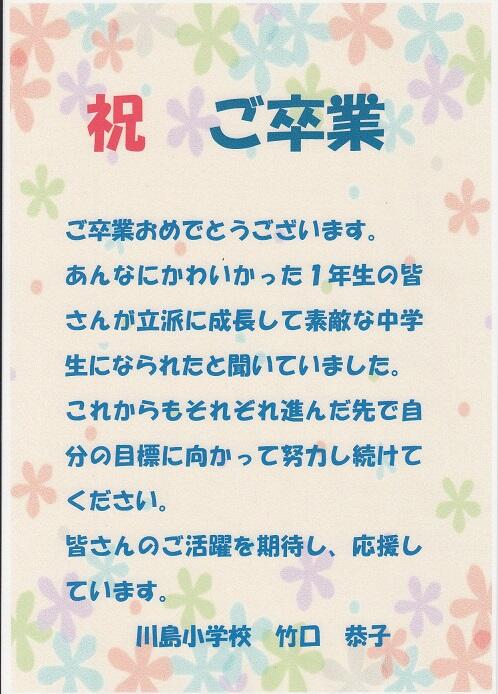 祝　ご卒業
ご卒業おめでとうございます。
あんなにかわいかった１年生の皆
さんが立派に成長して素敵な中学
生になられたと聞いていました。
これからもそれぞれ進んだ先で自
分の目標に向かって努力し続けて
ください。
皆さんのご活躍を期待し、応援し
ています。
川島小学校　竹口　恭子